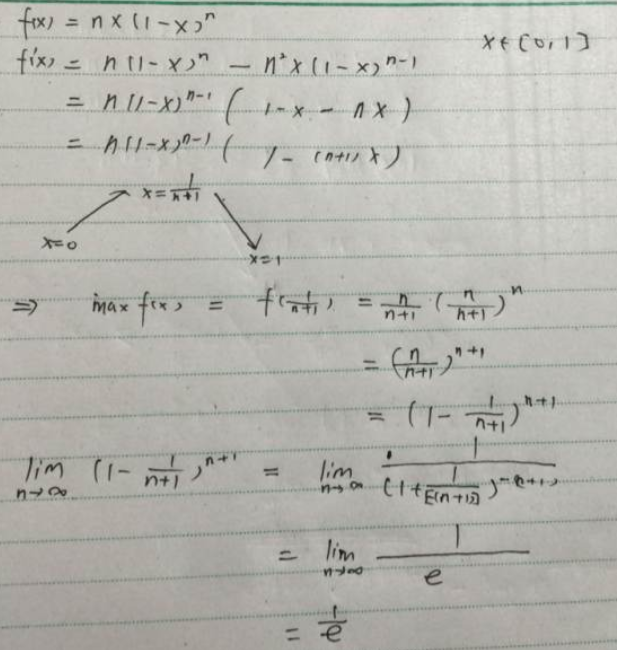 f(x) = n x (1-x)ⁿ
x ∈ [0, 1]
f'(x) = n (1-x)ⁿ - n² x (1-x)ⁿ⁻¹
= n (1-x)ⁿ⁻¹ ( 1-x - nx )
= n (1-x)ⁿ⁻¹ ( 1 - (n+1) x )
x = 1/(n+1)
x=0
x=1
⇒ max f(x) = f(1/(n+1)) = n/(n+1) (n/(n+1))ⁿ
= (n/(n+1))ⁿ⁺¹
= (1 - 1/(n+1))ⁿ⁺¹
lim n→∞ (1 - 1/(n+1))ⁿ⁺¹ = lim n→∞ 1/(1 + 1/[-(n+1)])^-(n+1)
= lim n→∞ 1/e
= 1/e